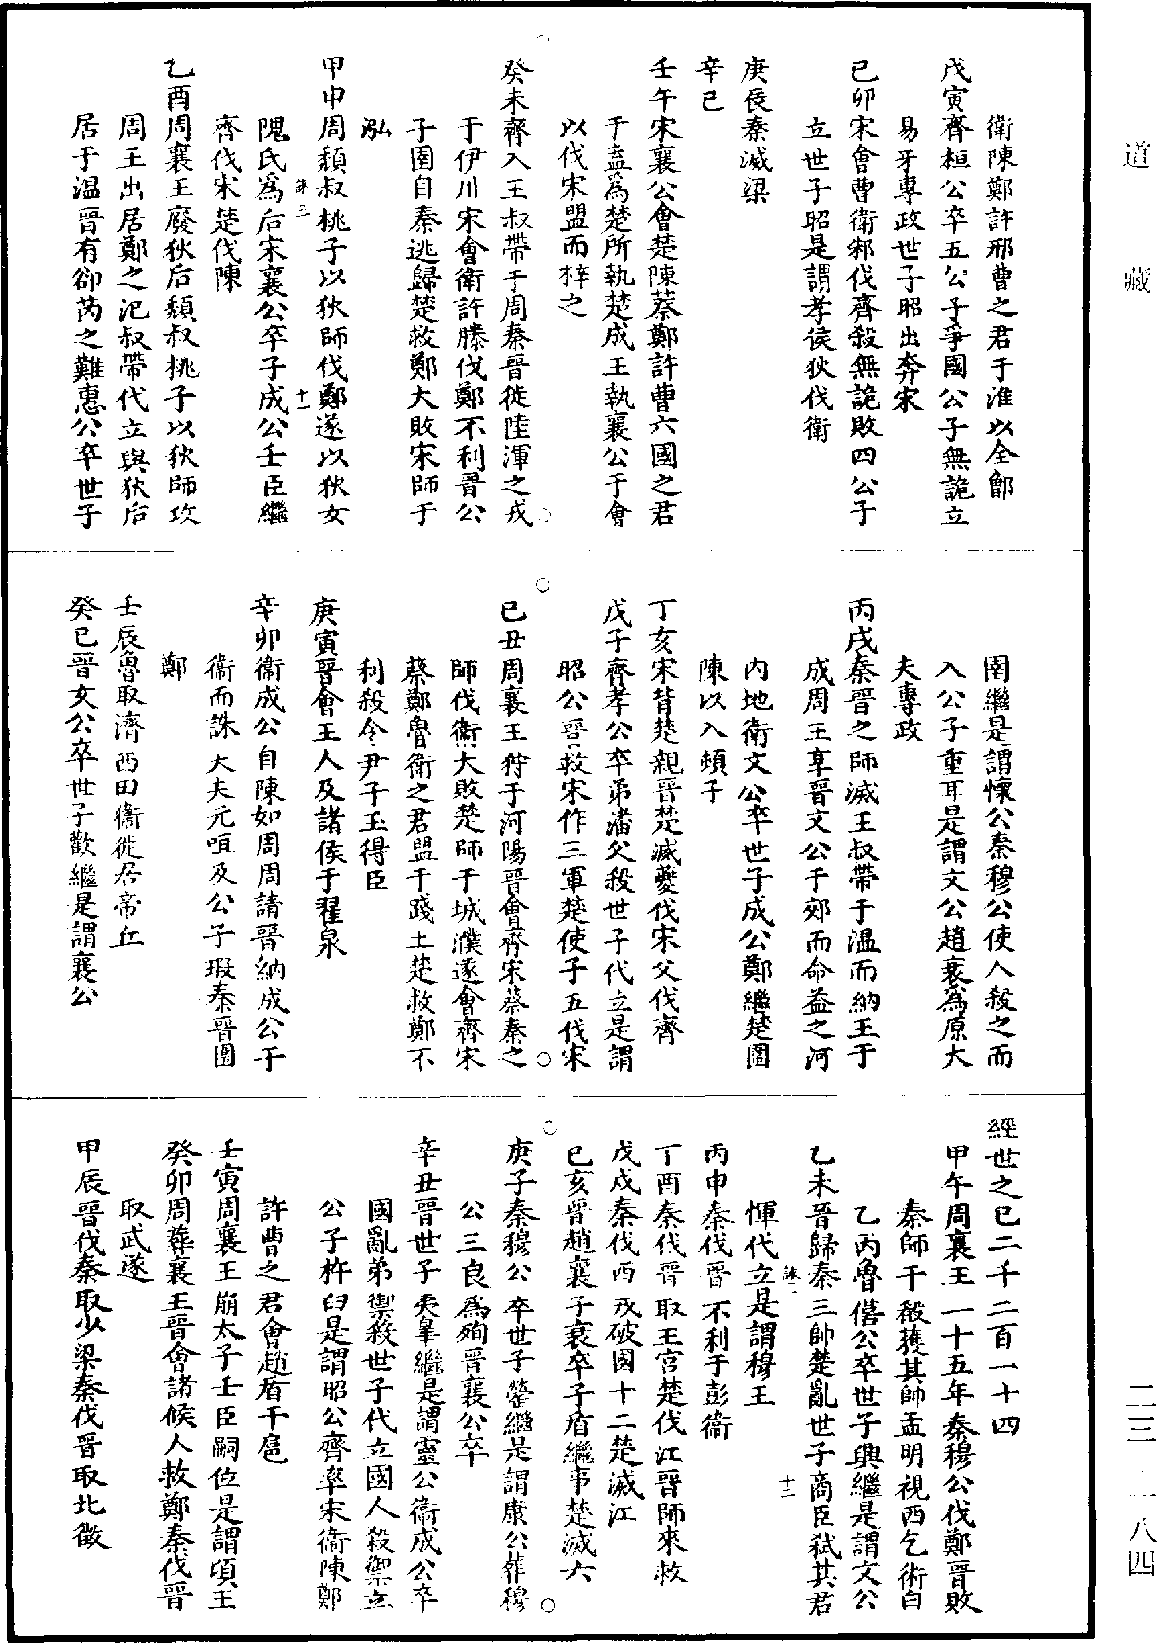 道藏
衛陳鄭許邢曹之君于淮以全鄫
戊寅齊桓公卒五公子爭國公子無詭立
易牙專政世子昭出奔宋
己卯宋會曹衛邾伐齊殺無詭敗四公子
立世子昭是謂孝侯狄伐衛
庚辰秦滅梁
辛巳
壬午宋襄公會楚陳蔡鄭許曹六國之君
于盍爲楚所執楚成王執襄公于會
以伐宋盟而釋之
癸未齊入王叔帶于周秦晉徙陸渾之戎
于伊川宋會衛許滕伐鄭不利晉公
子圉自秦逃歸楚救鄭大敗宋師于
泓
甲申周頽叔桃子以狄師伐鄭遂以狄女
隗氏爲后宋襄公卒子成公壬臣繼
齊伐宋楚伐陳
乙酉周襄王廢狄后頽叔桃子以狄師攻
周王出居鄭之氾叔帶代立與狄后
居于温晉有郤芮之難惠公卒世子
圉繼是謂懷公秦穆公使人殺之而
入公子重耳是謂文公趙衰爲原大
夫專政
丙戌秦晉之師滅王叔帶于温而納王于
成周王享晉文公于郊而命益之河
内地衛文公卒世子成公鄭繼楚圍
陳以入頓子
丁亥宋背楚親晉楚滅夔伐宋父伐齊
戊子齊孝公卒弟潘父殺世子代立是謂
昭公晉救宋作三軍楚使子玉伐宋
己丑周襄王狩于河陽晉會齊宋蔡秦之
師伐衛大敗楚師于城濮遂會齊宋
蔡鄭魯衛之君盟于踐土楚救鄭不
利殺令尹子玉得臣
庚寅晉會王人及諸侯于翟泉
辛卯衛成公自陳如周周請晉納成公于
衛而誅大夫元咺及公子瑕秦晉圍
鄭
壬辰魯取濟西田衛徙居帝丘
癸巳晉文公卒世子歡繼是謂襄公
經世之巳二千二百一十四
甲午周襄王一十五年秦穆公伐鄭晉敗
秦師于殽獲其帥孟明視西乞術白
乙丙魯僖公卒世子興繼是謂文公
乙未晉歸秦三帥楚亂世子商臣弑其君
惲代立是謂穆王
丙申秦伐晉不利于彭衙
丁酉秦伐晉取王宮楚伐江晉師來救
戊戌秦伐西戎破國十二楚滅江
己亥晉趙襄子衰卒子盾繼事楚滅六
庚子秦穆公卒世子罃繼是謂康公葬穆
公三良爲殉晉襄公卒
辛丑晉世子夷臯繼是謂靈公衛成公卒
國亂弟禦殺世子代立國人殺禦立
公子杵臼是謂昭公齊率宋衛陳鄭
許曹之君會趙盾于扈
壬寅周襄王崩太子壬臣嗣位是謂頃王
癸卯周葬襄王晉會諸候人救鄭秦伐晉
取武遂
甲辰晉伐秦取少梁秦伐晉取北徵
二三—一八四